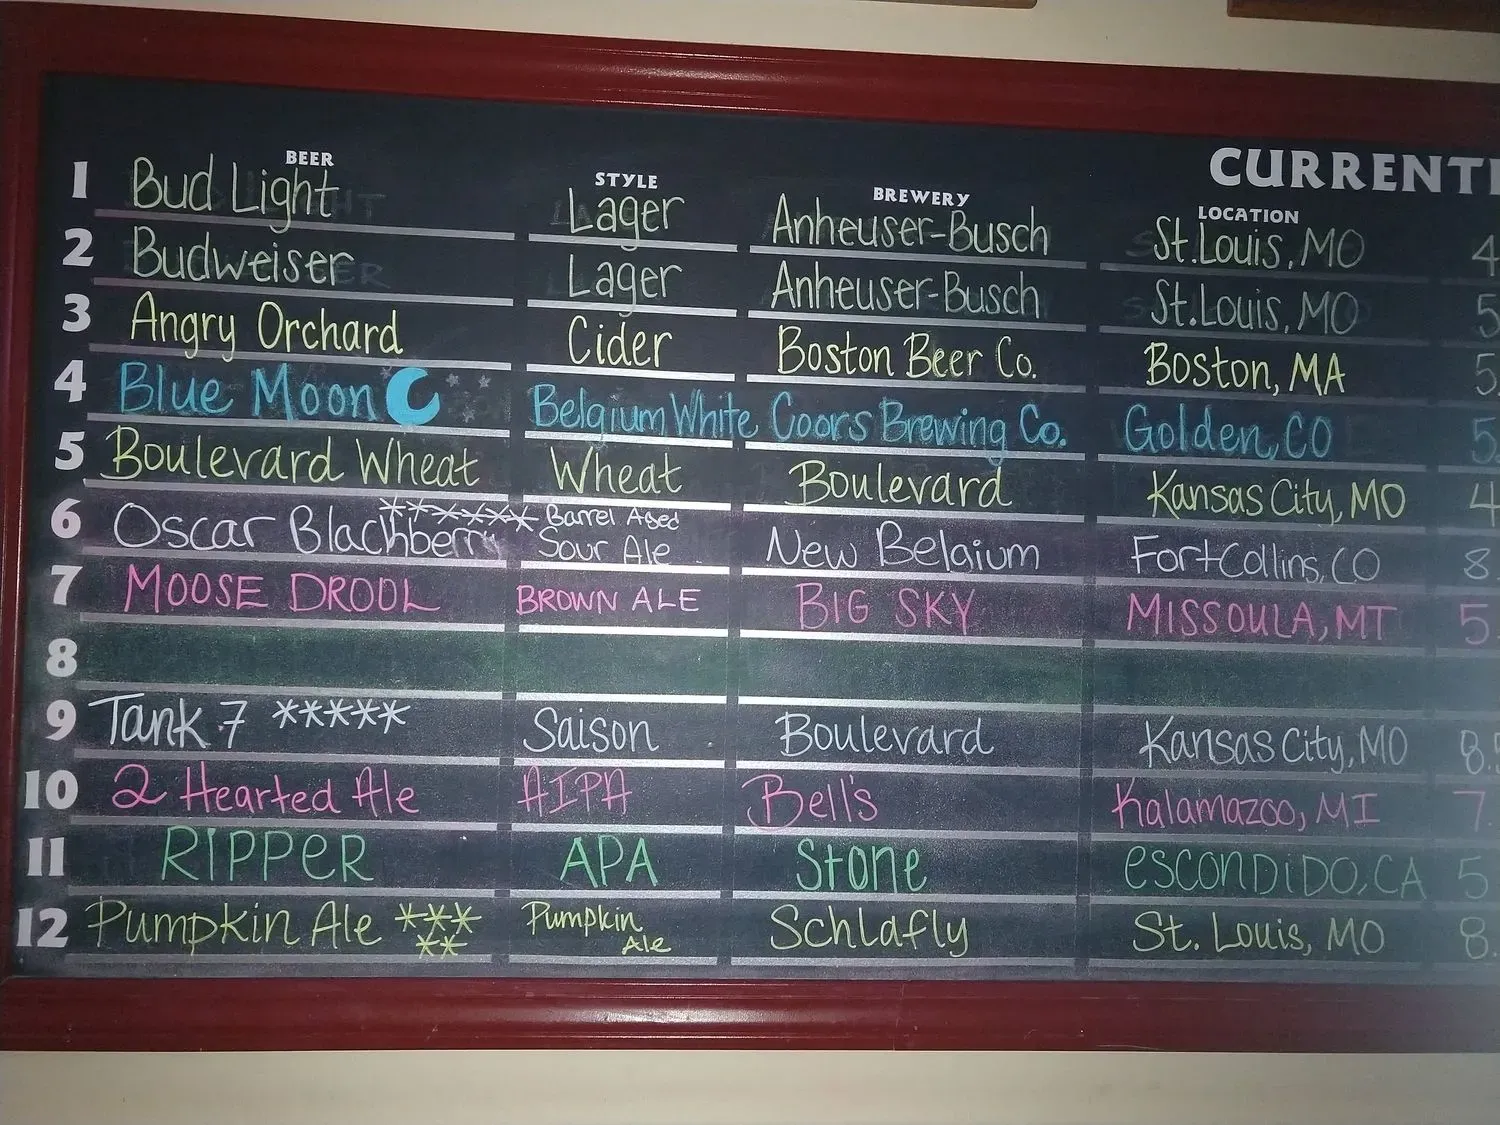 CURRENTL
BEER STYLE BREWERY LOCATION
1 Bud Light Lager Anheuser-Busch St. Louis, MO 4
2 Budweiser Lager Anheuser-Busch St. Louis, MO 5
3 Angry Orchard Cider Boston Beer Co. Boston, MA 5
4 Blue Moon Belgium White Coors Brewing Co. Golden, CO 5
5 Boulevard Wheat Wheat Boulevard Kansas City, MO 4
6 Oscar Blackberry ****** Barrel Aged Sour Ale New Belgium Fort Collins, CO 8
7 MOOSE DROOL BROWN ALE BIG SKY MISSOULA, MT 5.
8
9 Tank 7 ***** Saison Boulevard Kansas City, MO 8.
10 2 Hearted Ale AIPA Bell's Kalamazoo, MI 7.
11 RIPPER APA Stone ESCONDIDO, CA 5
12 Pumpkin Ale ***** Pumpkin Ale Schlafly St. Louis, MO 8.